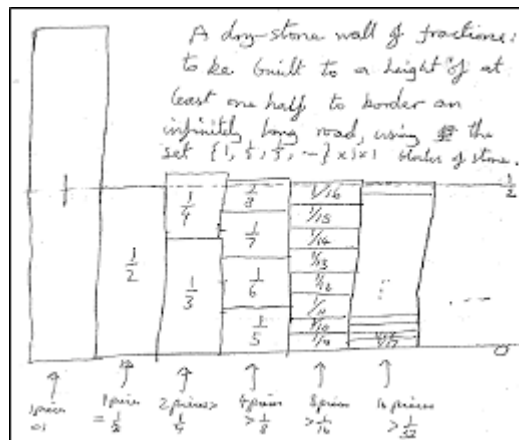 A dry-stone wall of fractions:
to be built to a height of at
least one half to border an
infinitely long road, using the
set {1, 1/2, 1/3, ~} x 1 x 1 of stone.
1
1/2
1/4
1/3
1/8
1/7
1/6
1/5
1/16
1/15
1/14
1/13
1/12
1/11
1/10
1/9
1/17
1/2
0
1 piece 2 pieces > 4 pieces 8 pieces 16 pieces
= 1/2 1/4 > 1/8 > 1/16 > 1/32